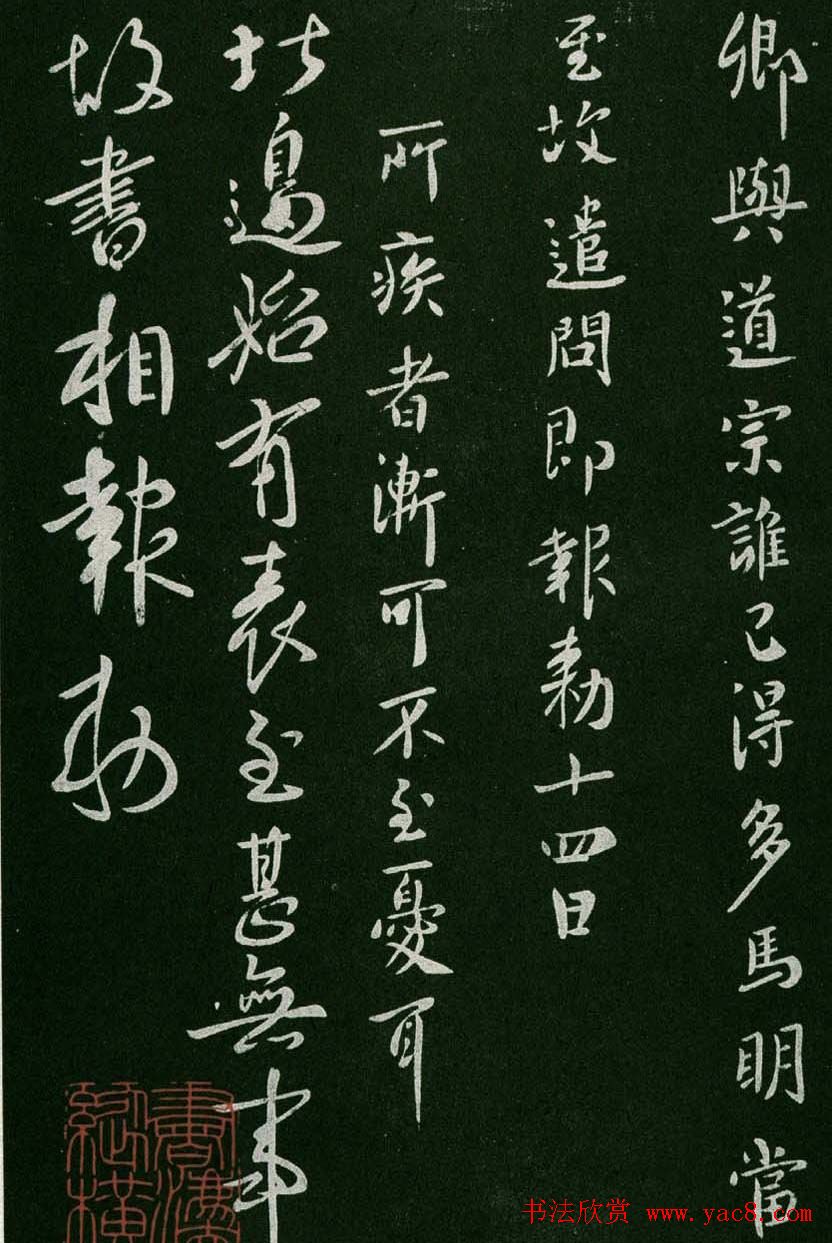 卿與道宗誰已得多馬明當
至故遣問即報勅十四日
所疾者漸可不至憂耳
北邊始有表至甚無事
故書相報勅
书法欣赏 www.yac8.com